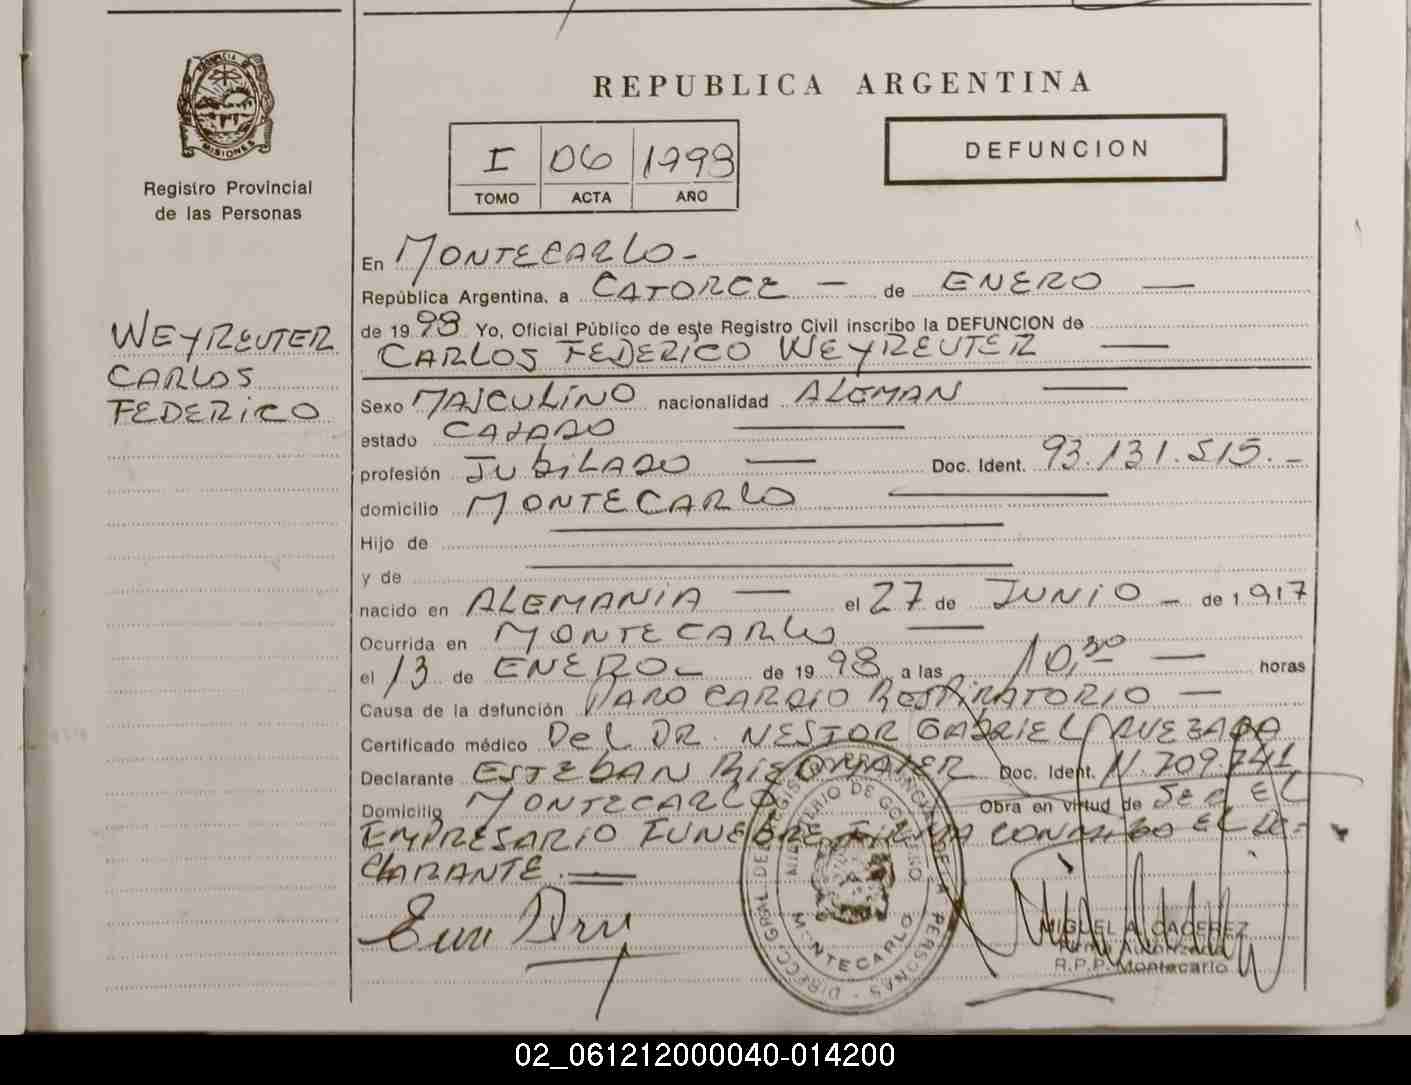 PROVINCIA DE
MISIONES
Registro Provincial
de las Personas
WEYREUTER
CARLOS
FEDERICO
REPUBLICA ARGENTINA
I 06 1998
TOMO ACTA AÑO
DEFUNCION
En MONTECARLO-
República Argentina, a CATORCE — de ENERO —
de 1998 Yo, Oficial Público de este Registro Civil inscribo la DEFUNCION de
CARLOS FEDERICO WEYREUTER —
Sexo MASCULINO nacionalidad ALEMAN —
estado CASADO —
profesión JUBILADO — Doc. Ident. 93.131.515.-
domicilio MONTECARLO —
Hijo de —
y de —
nacido en ALEMANIA — el 27 de JUNIO - de 1.917
Ocurrida en MONTECARLO —
el 13 de ENERO- de 1998, a las 10,30 — horas
Causa de la defunción PARO CARDIO RESPIRATORIO —
Certificado médico Del DR. NESTOR GABRIEL QUEZADA
Declarante ESTEBAN Doc. Ident. 709.741
Domicilio MONTECARLO Obra en virtud de SER EL
EMPRESARIO FUNEBRE FIRMA CONMIGO EL DE=
CLARANTE.=
DIRECC. GRAL. DEL REGISTRO PROVINCIAL DE LAS PERSONAS
MINISTERIO DE GOBIERNO
MONTECARLO
MIGUEL A. CACEREZ
Firma Autorizada
R.P.P. Montecarlo
02_061212000040-014200